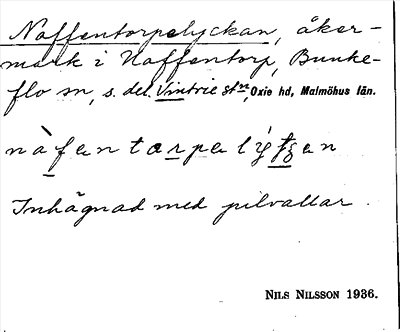 Naffentorpslyckan, åker-
mark i Naffentorp, Bunke-
flo sn, s. del. Vintrie stn, Oxie hd, Malmöhus län.
Inhägnad med pilvallar.
NILS NILSSON 1936.